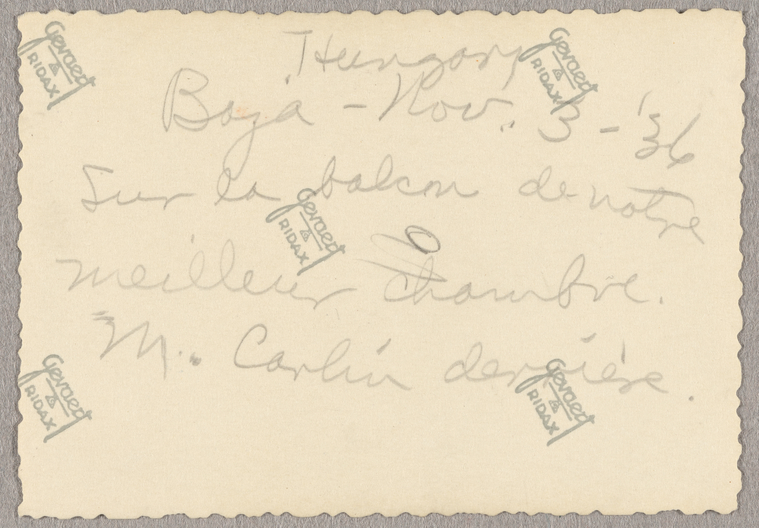 Hungary
Baja - Nov. 3 - '36
Sur la balcon de notre
meilleur chambre.
M. Carlin derrière.
Gevaert
RIDAX
Gevaert
RIDAX
Gevaert
RIDAX
Gevaert
RIDAX
Gevaert
RIDAX